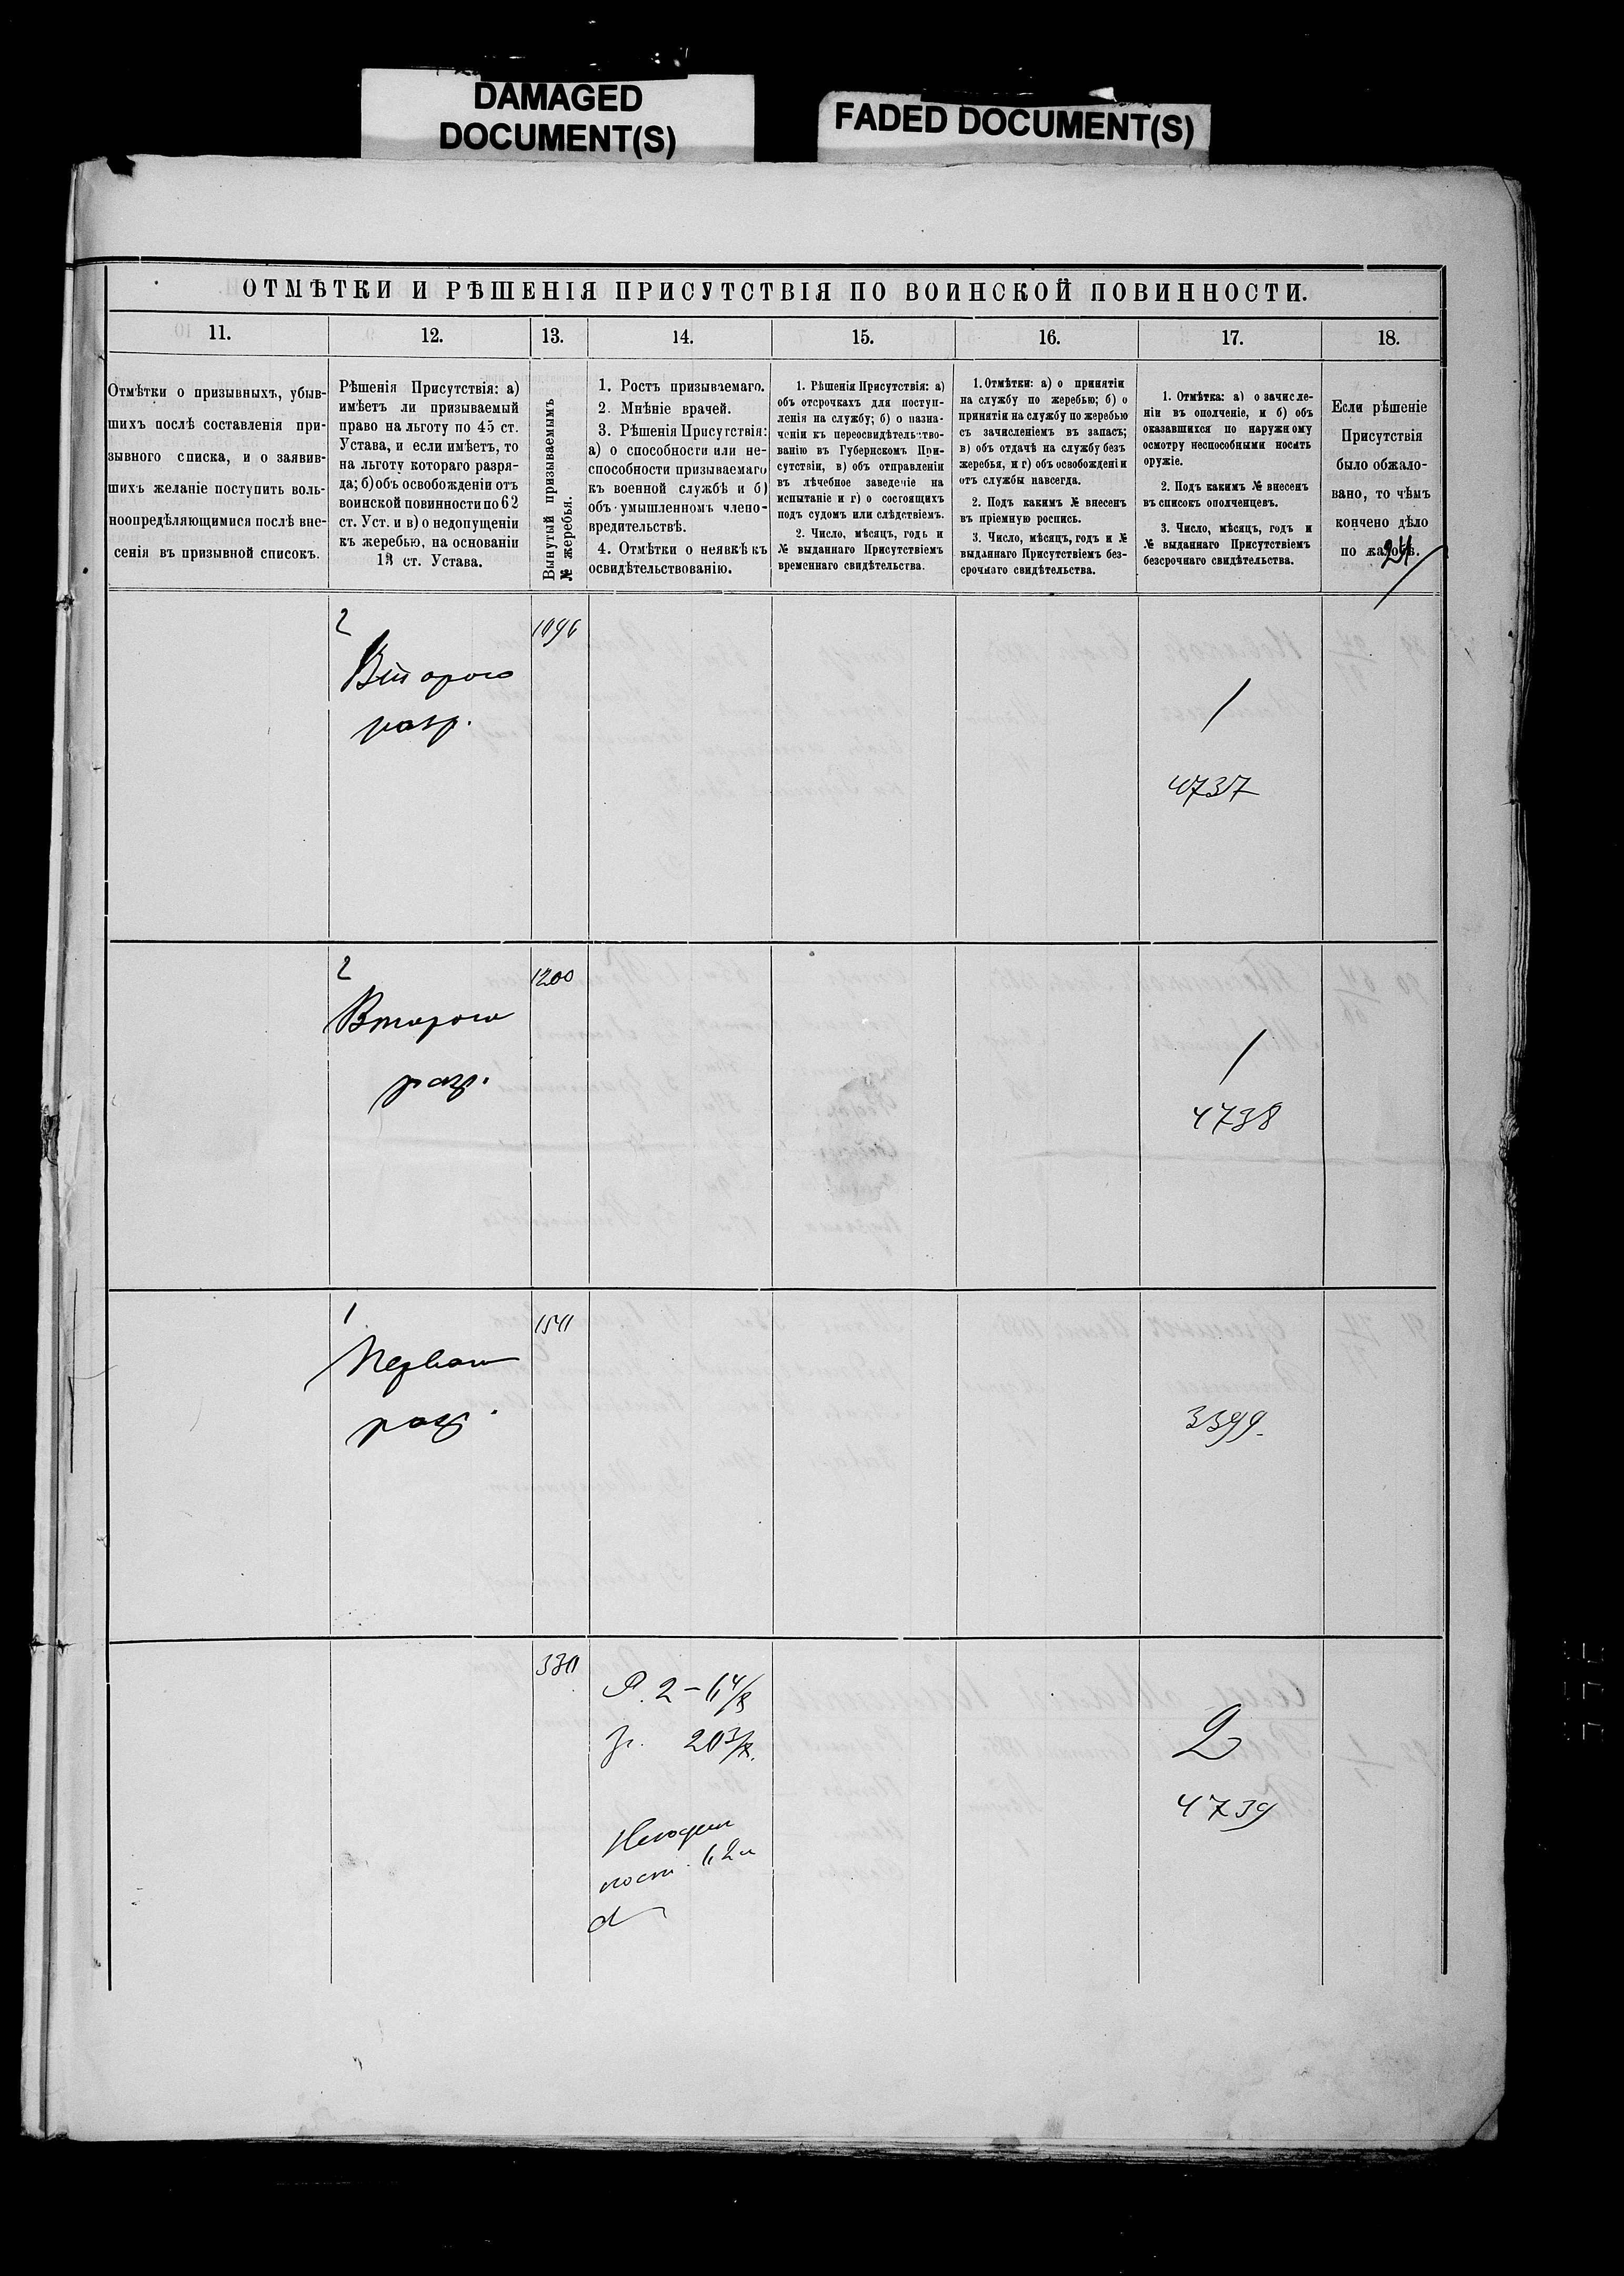 DAMAGED
DOCUMENT(S)
FADED DOCUMENT(S)
ОТМѢТКИ И РѢШЕНІЯ ПРИСУТСТВІЯ ПО ВОИНСКОЙ ПОВИННОСТИ.
11.
12.
13.
14.
15.
16.
17.
18.
Отмѣтки о призывныхъ, убыв-
шихъ послѣ составленія при-
зывного списка, и о заявив-
шихъ желаніе поступить воль-
ноопредѣляющимися послѣ вне-
сенія въ призывной списокъ.
Рѣшенія Присутствія: а)
имѣетъ ли призываемый
право на льготу по 45 ст.
Устава, и если имѣетъ, то
на льготу котораго разря-
да; б) объ освобожденіи отъ
воинской повинности по 62
ст. Уст. и в) о недопущеніи
къ жеребью, на основаніи
13 ст. Устава.
Вынутый призываемымъ
№ жеребья.
1. Ростъ призываемаго.
2. Мнѣніе врачей.
3. Рѣшенія Присутствія:
а) о способности или не-
способности призываемаго
къ военной службѣ и б)
объ умышленномъ члено-
вредительствѣ.
4. Отмѣтки о неявкѣ къ
освидѣтельствованію.
1. Рѣшенія Присутствія: а)
объ отсрочкахъ для поступ-
ленія на службу; б) о назна-
ченіи къ переосвидѣтельство-
ванію въ Губернскомъ При-
сутствіи, в) объ отправленіи
въ лѣчебное заведеніе на
испытаніе и г) о состоящихъ
подъ судомъ или слѣдствіемъ.
2. Число, мѣсяцъ, годъ и
№ выданнаго Присутствіемъ
временнаго свидѣтельства.
1. Отмѣтки: а) о принятіи
на службу по жеребью; б) о
принятіи на службу по жеребью
съ зачисленіемъ въ запасъ;
в) объ отдачѣ на службу безъ
жеребья, и г) объ освобожденіи
отъ службы навсегда.
2. Подъ какимъ № внесенъ
въ пріемную роспись.
3. Число, мѣсяцъ, годъ и №
выданнаго Присутствіемъ без-
срочнаго свидѣтельства.
1. Отмѣтка: а) о зачисле-
ніи въ ополченіе, и б) объ
оказавшихся по наружному
осмотру неспособными носить
оружіе.
2. Подъ какимъ № внесенъ
въ списокъ ополченцевъ.
3. Число, мѣсяцъ, годъ и
№ выданнаго Присутствіемъ
безсрочнаго свидѣтельства.
Если рѣшеніе
Присутствія
было обжало-
вано, то чѣмъ
кончено дѣло
по жалобѣ.
2
Второго
разр.
1096
1
4737
2
Второго
разр.
1200
1
4738
1
Перваго
разр.
3399.
2
4739